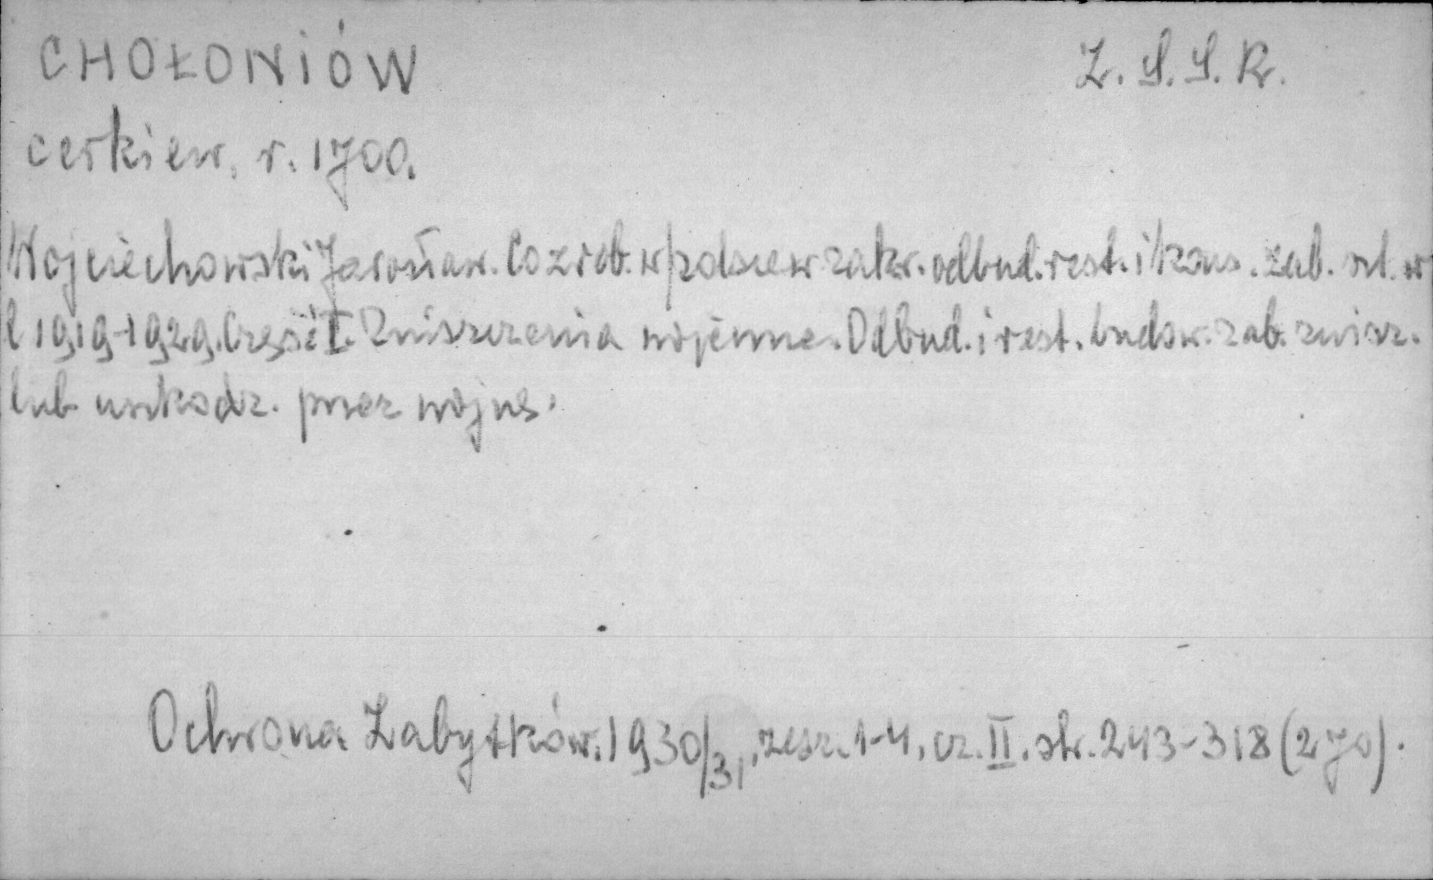 CHOŁONIÓW
Z. S. S. R.
cerkiew, r. 1700.
Wojciechowski Jarosław. Co zrob. w polsce w zakr. odbud. rest. i kons. zab. szt. w
l 1919-1929. Część I. Zniszczenia wojenne. Odbud. i rest. budow. zab. znisz.
lub uszkodz. przez wojnę.
Ochrona Zabytków. 1930/31, zesz. 1-4, cz. II. str. 243-318 (270).